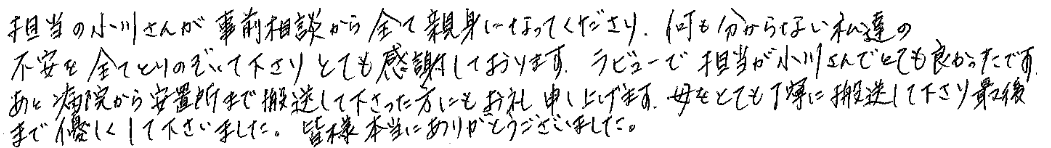 担当の小川さんが事前相談から全て親身になってくださり、何も分からない私達の
不安を全てとりのぞいて下さりとても感謝しております。ラビューで担当が小川さんでとても良かったです。
あと病院から安置所まで搬送して下さった方にもお礼申し上げます。母をとても丁寧に搬送して下さり最後
まで優しくして下さいました。皆様本当にありがとうございました。